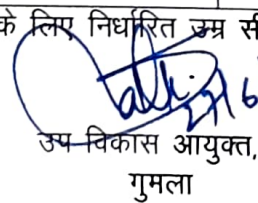 के लिए निर्धारित उम्र सी
27/6
उप विकास आयुक्त,
गुमला